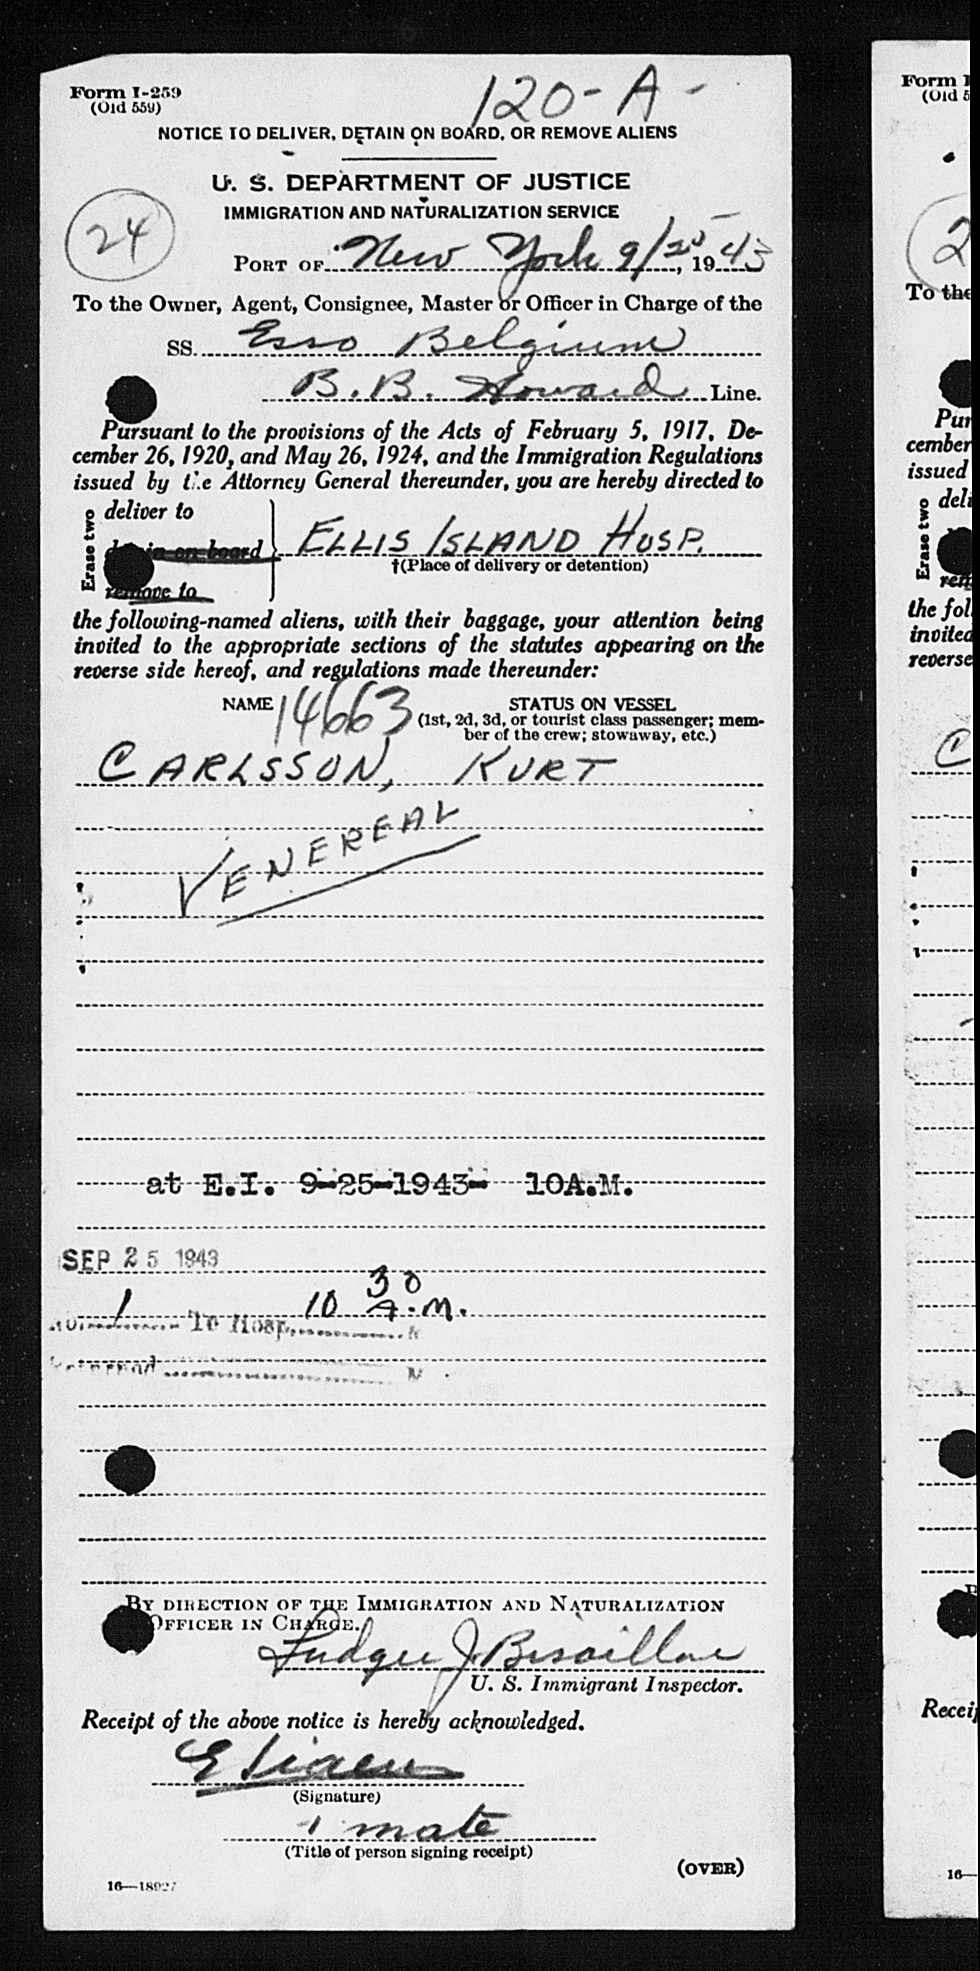 Form I-259
(Old 559)
120-A-
NOTICE TO DELIVER, DETAIN ON BOARD, OR REMOVE ALIENS
U. S. DEPARTMENT OF JUSTICE
IMMIGRATION AND NATURALIZATION SERVICE
24
PORT OF New York 9/25, 1943
To the Owner, Agent, Consignee, Master or Officer in Charge of the
SS. Esso Belgium
B. B. Howard Line.
Pursuant to the provisions of the Acts of February 5, 1917, De-
cember 26, 1920, and May 26, 1924, and the Immigration Regulations
issued by the Attorney General thereunder, you are hereby directed to
Erase two
deliver to
in on board
remove to
ELLIS ISLAND HOSP.
†(Place of delivery or detention)
the following-named aliens, with their baggage, your attention being
invited to the appropriate sections of the statutes appearing on the
reverse side hereof, and regulations made thereunder:
NAME 14663 STATUS ON VESSEL
(1st, 2d, 3d, or tourist class passenger; mem-
ber of the crew; stowaway, etc.)
CARLSSON, KURT
VENEREAL
at E.I. 9-25-1943- 10A.M.
SEP 25 1943
1 To Hosp. 10 30 A.M.
M
BY DIRECTION OF THE IMMIGRATION AND NATURALIZATION
OFFICER IN CHARGE.
J.
U. S. Immigrant Inspector.
Receipt of the above notice is hereby acknowledged.
(Signature)
1 mate
(Title of person signing receipt)
(OVER)
16—18927
Form
(Old 5
2
To the
Pur
cember
issued
Erase two
deli
rem
the fol
invited
reverse
C
Recei
16—